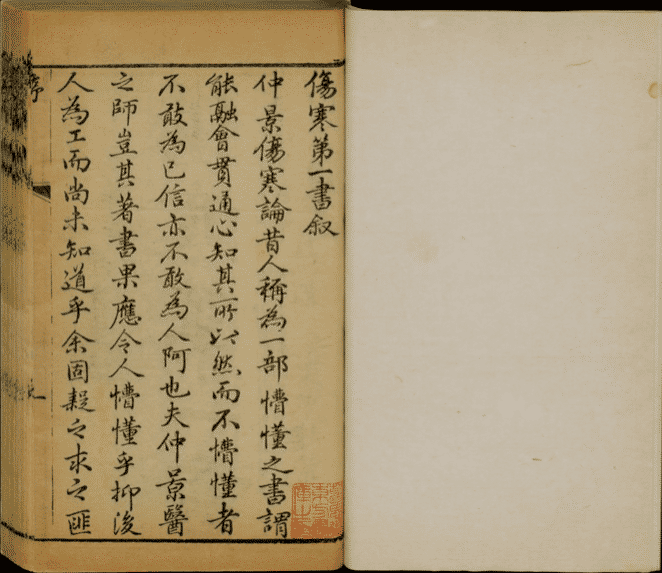 傷寒第一書叙
仲景傷寒論昔人稱為一部懵懂之書謂
能融會貫通心知其所以然而不懵懂者
不敢為已信亦不敢為人阿也夫仲景醫
之師豈其著書果應令人懵懂乎抑後
人為工而尚未知道乎余固疑之求之匪
序